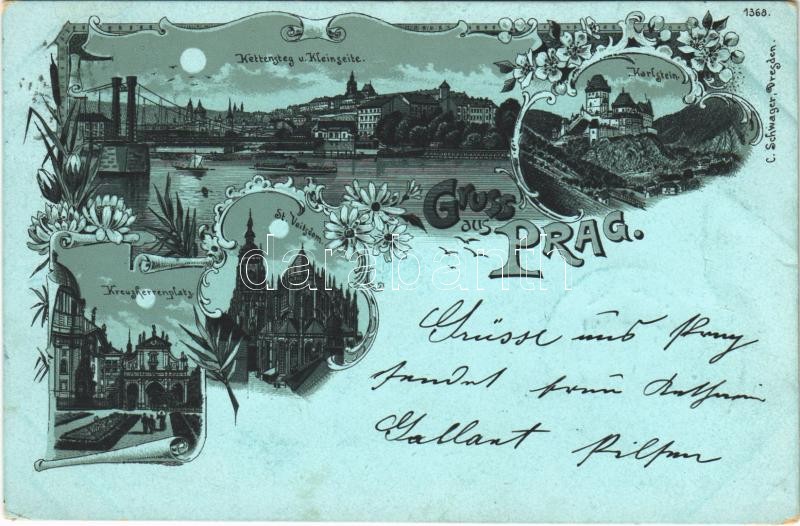 1368.
Kettensteg u. Kleinseite.
Karlstein.
C. Schwager Dresden.
Gruss
aus
PRAG.
St. Veitsdom.
Kreuzherrenplatz.
darabanth
Grüsse aus Prag
sendet
Gallant Pilsen